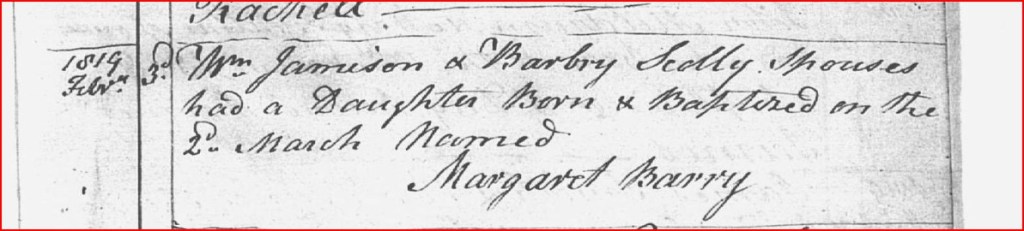 Rachel
1819 Febry. 3d Wm Jamieson & Barbry Scolly Spouses
had a Daughter Born & Baptized on the
2d. March Named
Margaret Barry